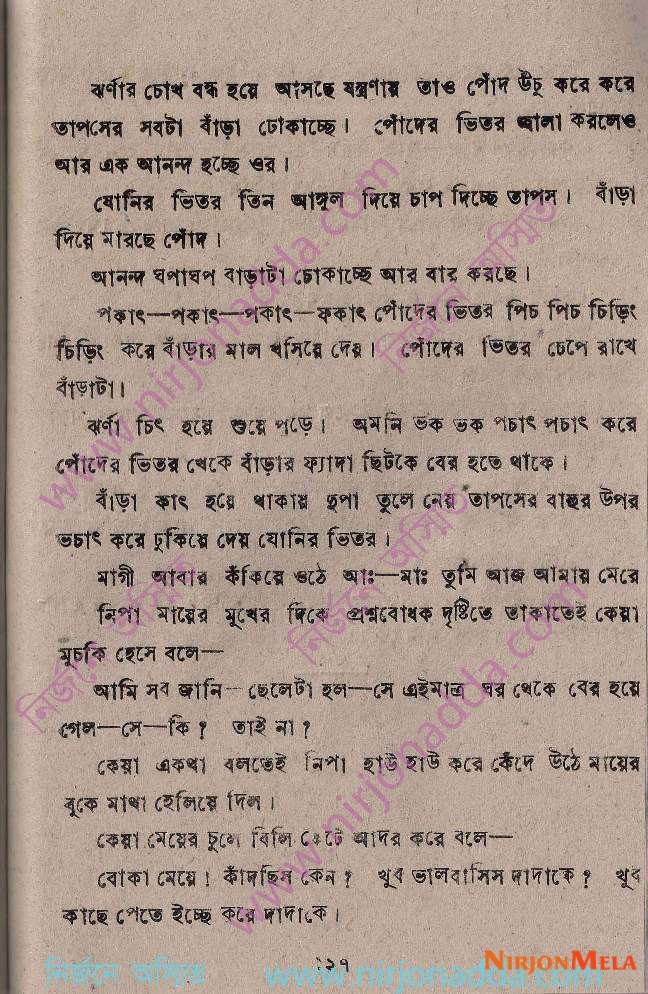 ঝর্ণার চোখ বন্ধ হয়ে আসছে যন্ত্রণায় তাও পোঁদ উঁচু করে করে
তাপসের সবটা বাঁড়া ঢোকাচ্ছে। পোঁদের ভিতর জ্বালা করলেও
আর এক আনন্দ হচ্ছে ওর।
যোনির ভিতর তিন আঙ্গুল দিয়ে চাপ দিচ্ছে তাপস। বাঁড়া
দিয়ে মারছে পোঁদ।
আনন্দ ঘপাঘপ বাড়াটা ঢোকাচ্ছে আর বার করছে।
পকাৎ—পকাৎ—পকাৎ—ফকাৎ পোঁদের ভিতর পিচ পিচ চিড়িং
চিড়িং করে বাঁড়ার মাল খসিয়ে দেয়। পোঁদের ভিতর চেপে রাখে
বাঁড়াটা।
ঝর্ণা চিৎ হয়ে শুয়ে পড়ে। অমনি ভক ভক পচাৎ পচাৎ করে
পোঁদের ভিতর থেকে বাঁড়ার ফ্যাদা ছিটকে বের হতে থাকে।
বাঁড়া কাৎ হয়ে থাকায় দুপা তুলে নেয় তাপসের বাহুর উপর
ভচাৎ করে ঢুকিয়ে দেয় যোনির ভিতর।
মাগী আবার কঁকিয়ে ওঠে আঃ—মাঃ তুমি আজ আমায় মেরে
নিপা মায়ের মুখের দিকে প্রশ্নবোধক দৃষ্টিতে তাকাতেই কেয়া
মুচকি হেসে বলে—
আমি সব জানি—ছেলেটা হল—সে এইমাত্র ঘর থেকে বের হয়ে
গেল—সে—কি? তাই না?
কেয়া একথা বলতেই নিপা হাউ হাউ করে কেঁদে উঠে মায়ের
বুকে মাথা হেলিয়ে দিল।
কেয়া মেয়ের চুলে বিলি কেটে আদর করে বলে—
বোকা মেয়ে! কাঁদছিস কেন? খুব ভালবাসিস দাদাকে? খুব
কাছে পেতে ইচ্ছে করে দাদাকে।
১২৭
NIRJONMELA
নির্জনে অস্মিত www.nirjonadda.com
www.nirjonadda.com
নির্জনে অস্মিত
নির্জনে অস্মিত
নির্জনে অস্মিত
www.nirjonadda.com